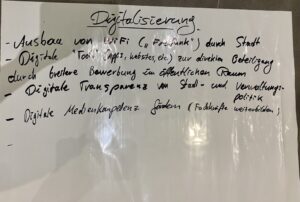 Digitalisierung
- Ausbau von WiFi („Freifunk") durch Stadt
- Digitale "Tools" (Apps, websites, etc) zur direkten Beteiligung
durch breitere Bewerbung im öffentlichen Raum
- Digitale Transparenz von Stadt- und Verwaltungs-
politik
- Digitale Medienkompetenz fördern (Fachkräfte weiterbilden)
-